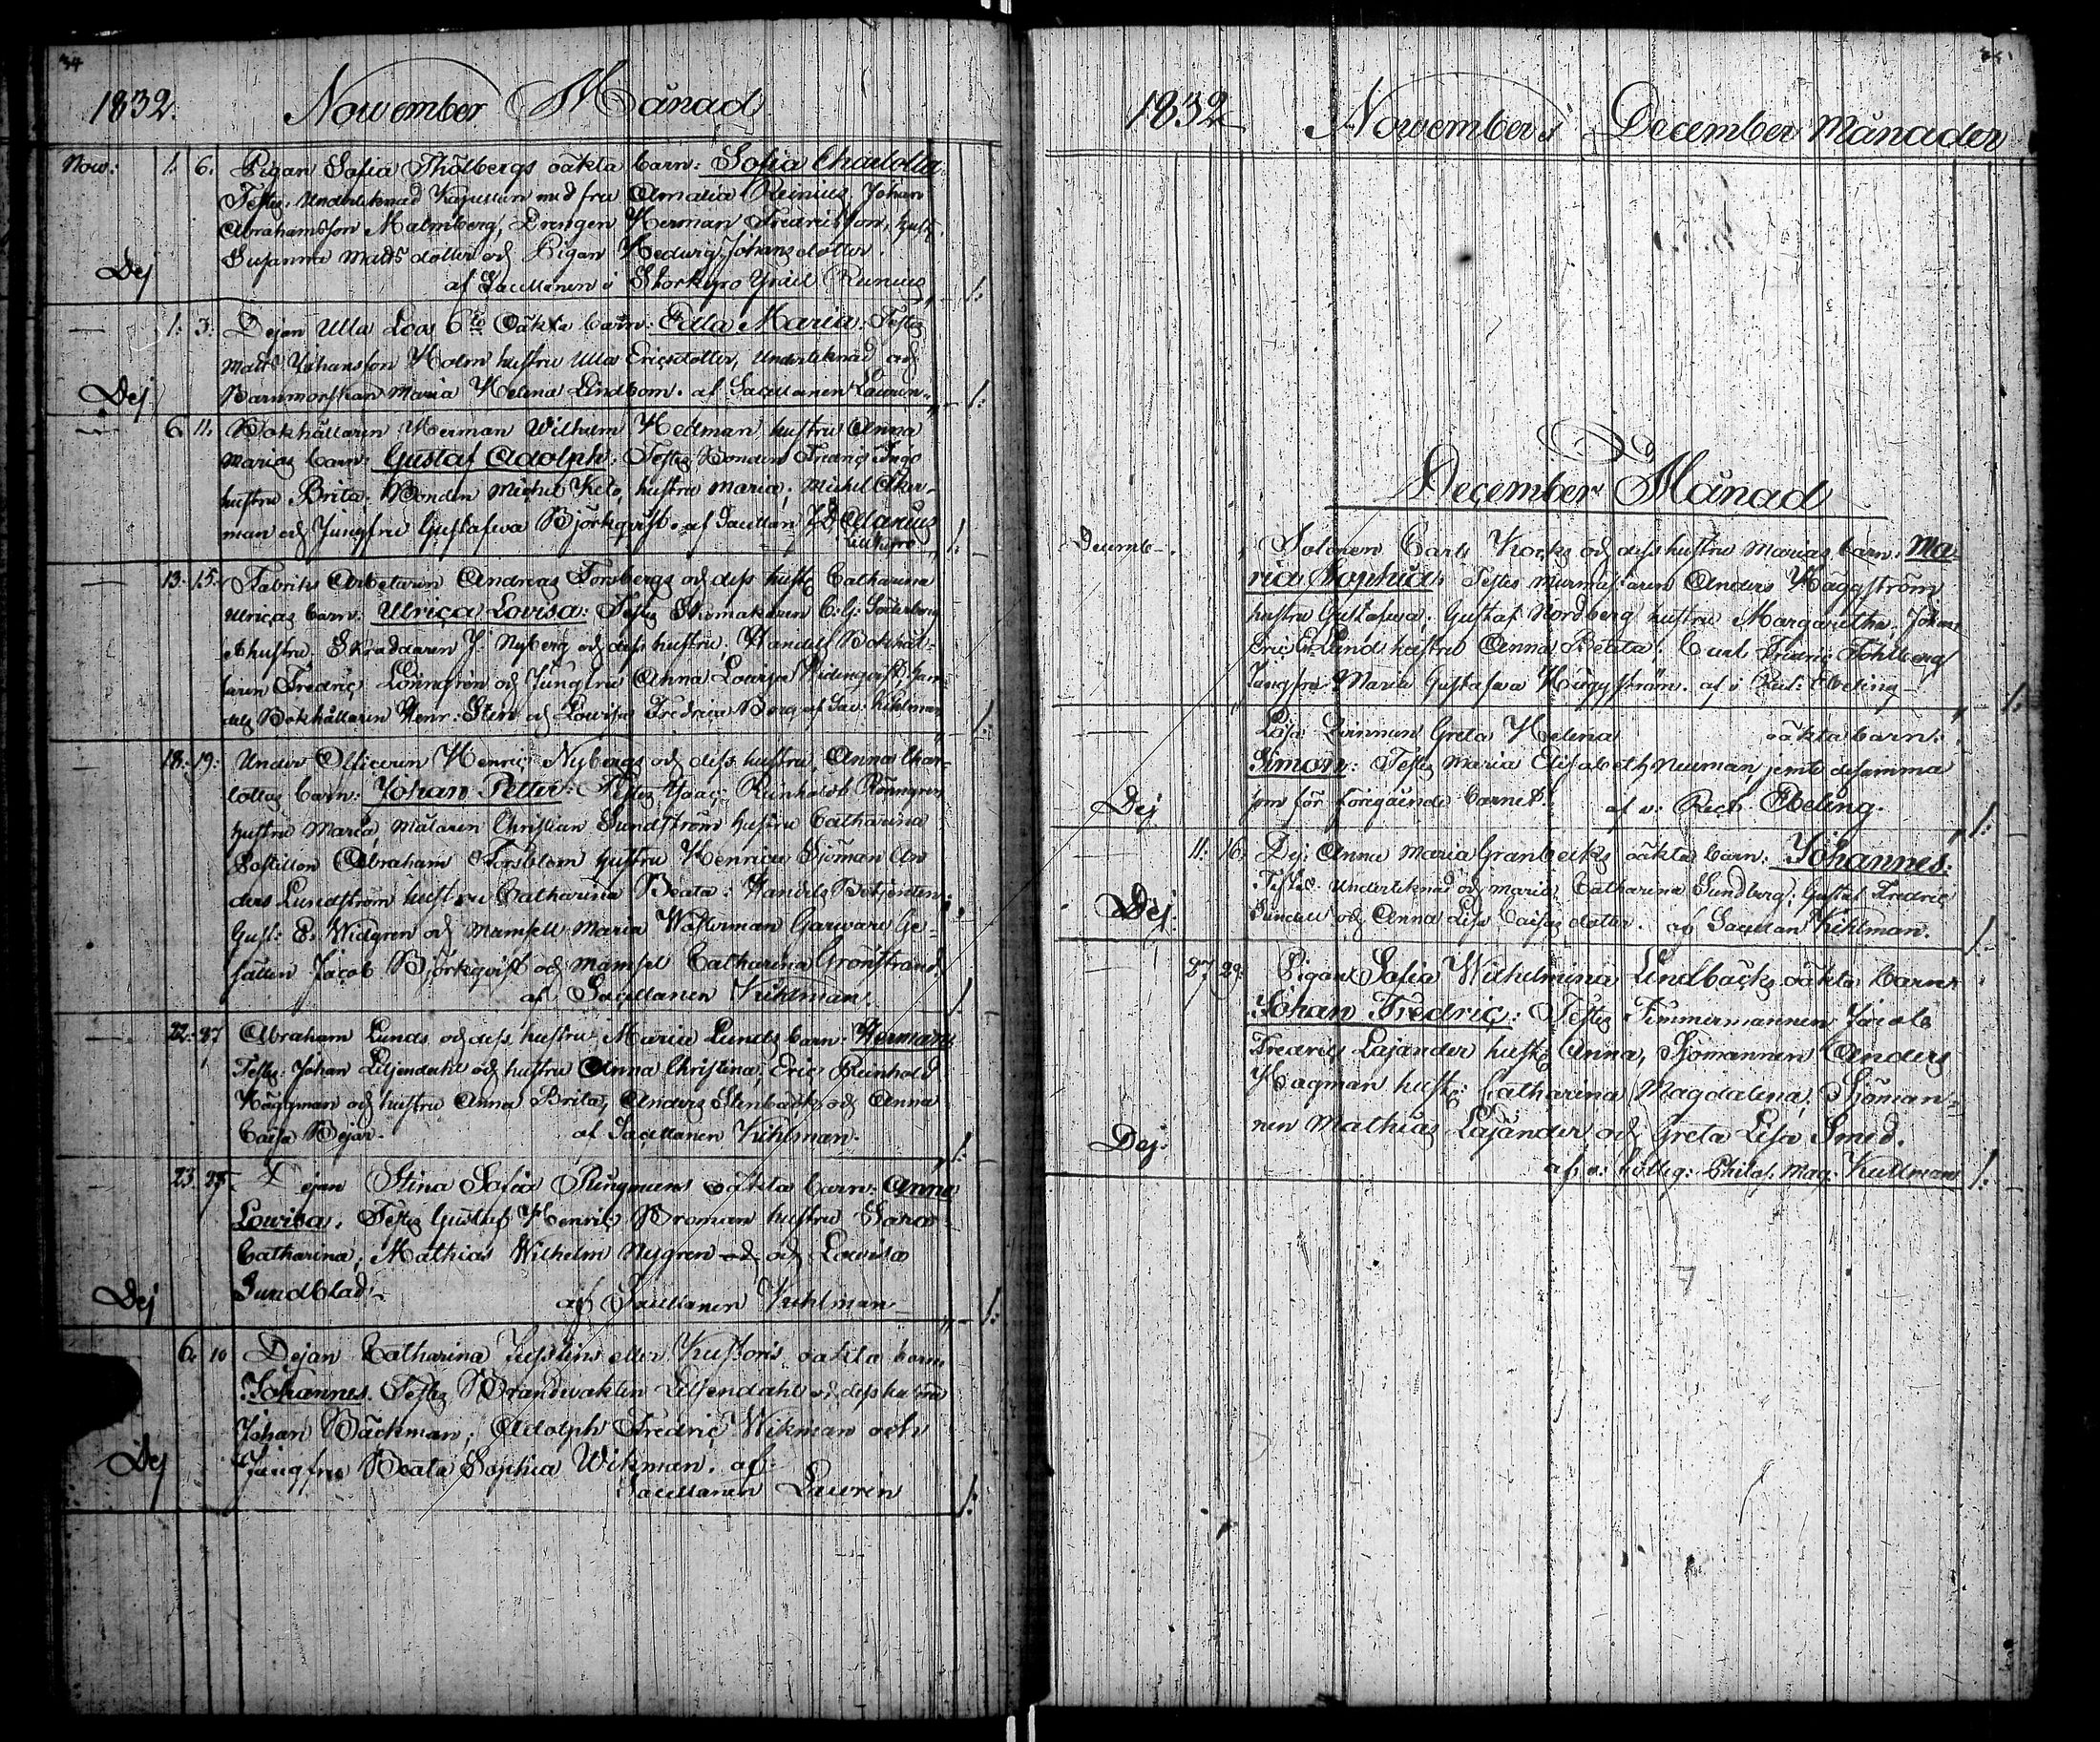 34
1832. November Månad
Nov: 1. 6. Pigan Sofia Thölbergs oäkta barn: Sofia Charlotta.
Testes: Underteknad Kapellan med fru Amalia Reinius, Johan
Abrahamsson Malmberg, Drengen Herman Fredricsson, hust.
Susanna Matts dotter och Pigan Hedwig Johansdotter.
Dej af Sacellanen i Storkyro Reinius 1:
1: 3: Dejan Ulla Loos 6te Oäkta barn: Edla Maria: Testes
Matts Johansson Holm hustru Ulla Ericsdotter, Underteknad och
Dej Barnmorskan Maria Helena Lindbom. af Sacellanen Lauren 1:
6. 11. Bokhållaren Herman Wilhelm Hedman hustru Anna
Marias barn: Gustaf Adolph: Testes Bonden Fredric Ingo
hustru Brita. Bonden Michel Keto, hustru Maria; Michel Åker-
man och Jungfru Gustafwa Björkqvist. af Sacellan 1:
Lillkyro
13. 15. Fabriks Arbetaren Andreas Forsbergs och dess hust. Catharina
Ulricas barn: Ulrica Lovisa: Testes Skomakaren C: G: Söderberg
& hustru. Skräddaren J. Nyberg och dess hustru; Handels Bokhål-
laren Fredric Lönngren och Jungfru Anna Lovisa Widenqvist, Han-
dels Bokhållaren Henr: Sten och Lovisa Fredrica Borg af Sac: Kihlman 1:
18. 19: Under Officeren Henric Nybergs och dess hustru, Anna Char-
lottas barn: Johan Petter: Testes Isaac Reinholds Rönngren
hustru Maria, Målaren Christian Sundström hustru Catharina
Postillon Abraham Forsblom hustru Henrica Sjöman An
ders Lundström hustru Catharina Beata: Handels Betjenten
Gust: E. Widgren och Mamsell Maria Wösterman Garware Ge-
sällen Jacob Björkqvist och Mamsell Catharina Grönstrand,
af Sacellanen Kihlman. 1
22. 27 Abraham Lunds och dess hustru Maria Lunds barn: Herman
Testes: Johan Liljendahl och hustru Anna Christina, Eric Reinhold
Häggman och hustru Anna Brita, Anders Stenbäck och Anna
Caisa Bejar. af Sacellanen Kihlman. 1:
23. Dejan Stina Sofia Ringmans oäkta barn: Anna
Lovisa. Testes Gustaf Henric Broman hustru Sara
Catharina; Mathias Wilhelm Nygren och Lovisa
Dej Sundblad. af Sacellanen Kihlman 1:
6. 10 Dejan Catharina eller oäkta barn
Johannes. Testes Brandwakten Liljendahl och dess hustru
Johan Bäckman; Adolph Fredric Wikman och
Dej Jungfru Beata Sophia Wikman. af
Sacellanen Lauren 1:
1832 November i December Månader
December Månad
Decemb Soldaten Carl och dess hustru Marias barn: Ma
ria Sophia: Testes Murmästaren Anders Häggström
hustru Gustafwa; Gustaf Nordberg hustru Margaretha; Johan
Eric Lund hustru Anna Beata; Carl Fredric Fohlberg
Jungfru Maria Gustafwa Häggström. af v Rect: Ebeling 1:
Lösa Qvinnan Greta Helena oäkta barn:
Simon: Testes Maria Elisabeth Neuman jemte desamma
Dej som för föregående barnet. af v: Rect: Ebeling. 1:
11. 16. Dej: Anna Maria Granbecks oäkta barn: Johannes:
Testes: Underteknad och Maria Catharina Sundberg; Gustaf Fredric
Dej: Sundell och Anna Lisa Caisas dotter. af Sacellan Kihlman. 1:
27 29: Pigan Sofia Wilhelmina Lindbäcks oäkta barn
Johan Fredric: Testes Timmermannen Jacob
Fredrics Lajander hust. Anna, Sjömannen Anders
Hagman hust: Catharina Magdalena; Sjöman-
Dej: nen Mathias Lajander och Greta Lisa Smed.
af v: Colleg: Philos. Mag: Kullman 1: